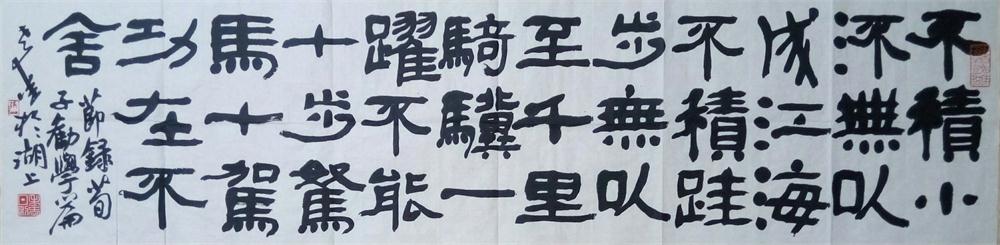 不積小
流無以
成江海
不積跬
步無以
至千里
騎驥一
躍不能
十步駑
馬十駕
功在不
舍
節錄荀
子勸學篇
於湖上